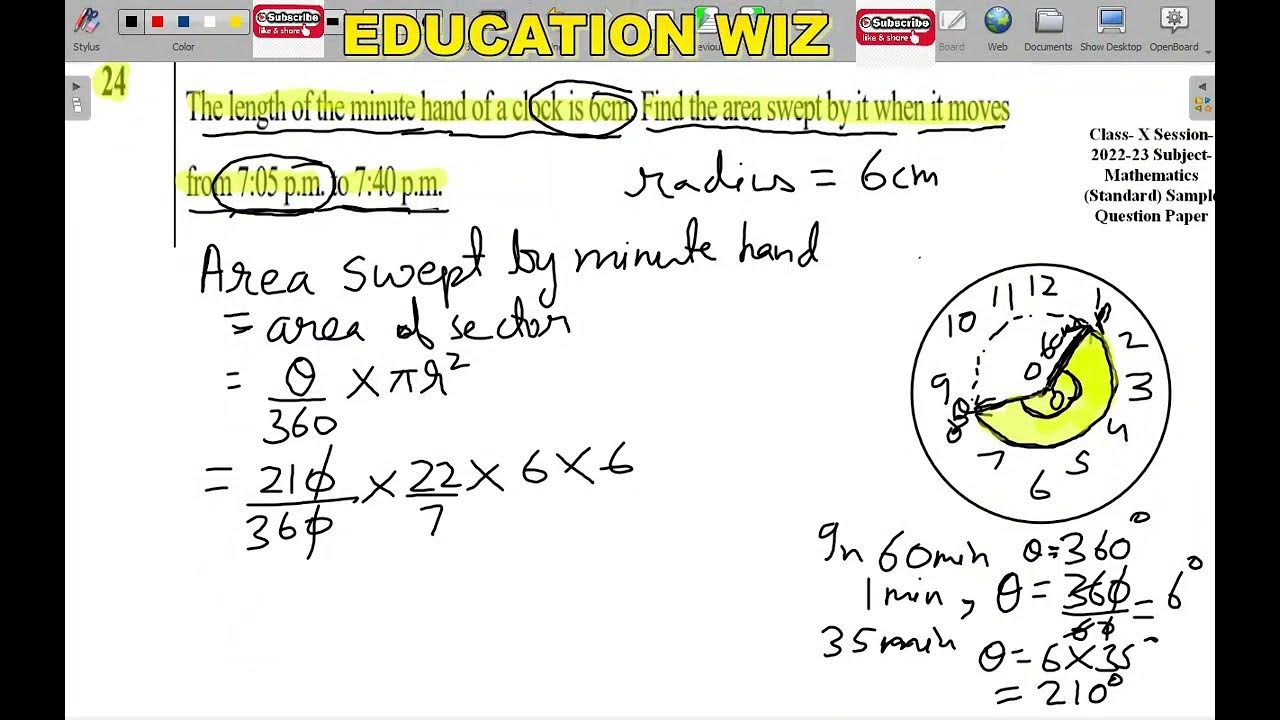 Subscribe
like & share
EDUCATION WIZ
Subscribe
like & share
Stylus
Color
Board
Web
Documents
Show Desktop
OpenBoard
24
The length of the minute hand of a clock is 6cm. Find the area swept by it when it moves
from 7:05 p.m. to 7:40 p.m.
radius = 6cm
Class- X Session-
2022-23 Subject-
Mathematics
(Standard) Sample
Question Paper
Area swept by minute hand
= area of sector
= θ/360 × πr²
= 210/360 × 22/7 × 6 × 6
12
11
1
10
2
9
3
4
7
5
6
6cm
O
θ
In 60min θ=360°
1min, θ = 360/60 = 6°
35min
θ = 6×35°
= 210°